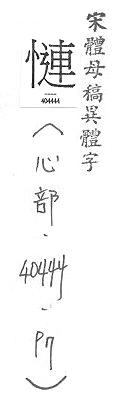 宋體母稿異體字
慩
404444
（心部．40444．P7）